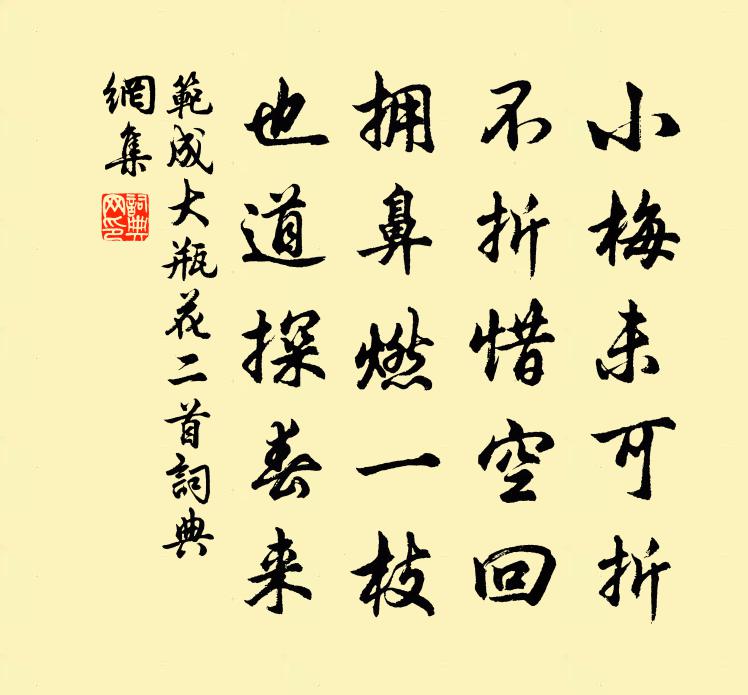 小梅未可折
不折惜空回
拥鼻燃一枝
也道探春来
範成大瓶花二首詞典
網集
詞典网印